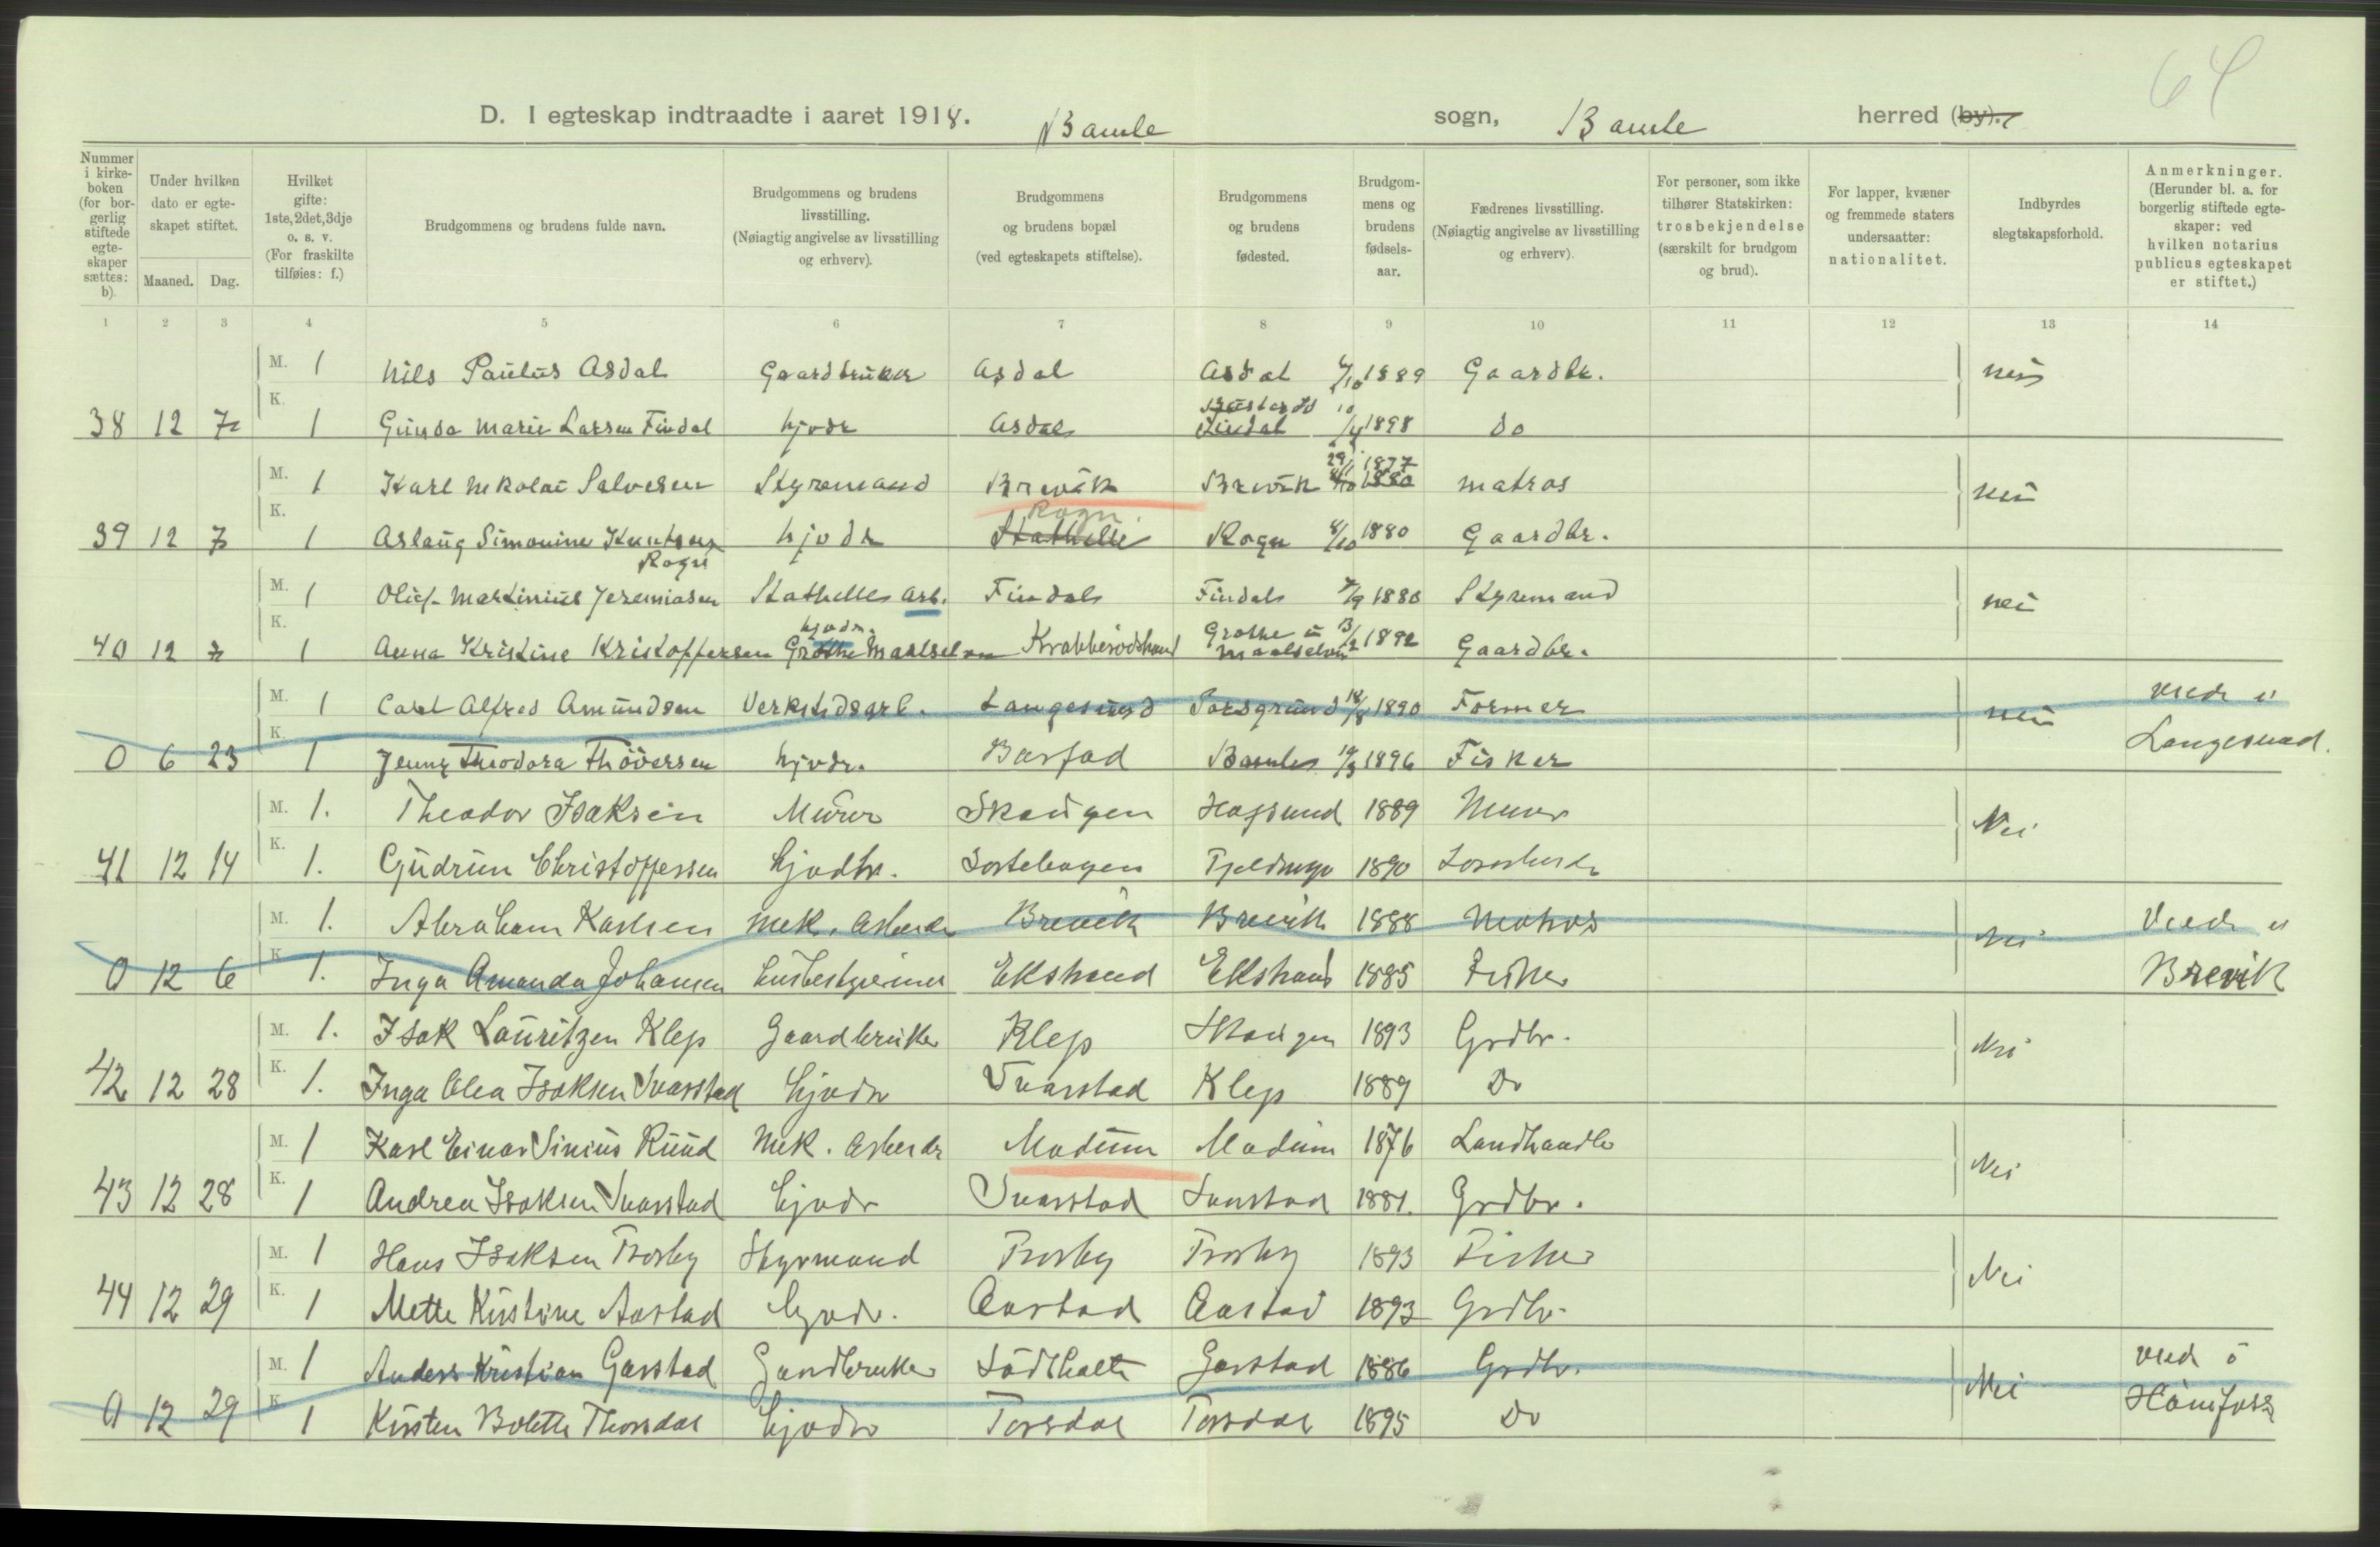 64
D. I egteskap indtraadte i aaret 1918. Bamle sogn, Bamle herred (by).
Nummer i kirkeboken (for borgerlig stiftede egteskaper sættes: b).
Under hvilken dato er egteskapet stiftet.
Maaned. Dag.
Hvilket gifte: 1ste, 2det, 3dje o. s. v. (For fraskilte tilføies: f.)
Brudgommens og brudens fulde navn.
Brudgommens og brudens livsstilling. (Nøiagtig angivelse av livsstilling og erhverv).
Brudgommens og brudens bopæl (ved egteskapets stiftelse).
Brudgommens og brudens fødested.
Brudgommens og brudens fødselsaar.
Fædrenes livsstilling. (Nøiagtig angivelse av livsstilling og erhverv).
For personer, som ikke tilhører Statskirken: trosbekjendelse (særskilt for brudgom og brud).
For lapper, kvæner og fremmede staters undersaatter: nationalitet.
Indbyrdes slegtskapsforhold.
Anmerkninger. (Herunder bl. a. for borgerlig stiftede egteskaper: ved hvilken notarius publicus egteskapet er stiftet.)
1 2 3 4 5 6 7 8 9 10 11 12 13 14
M. 1 Nils Paulus Asdal Gaardbruker Asdal Asdal 1889 Gaardbr. nei
38 12 7 K. 1 Gunda Marie Larsen Findal hjvdr Asdal Findal 1898 do
M. 1 Karl Nikolai Salvesen Styrmand Brevik Brevik 29/11 1877 1880 matros nei
39 12 7 K. 1 Aslaug Simonine Knutsen Rogn hjvdr Stathelle Rogn Rogn 8/10 1880 Gaardbr.
M. 1 Oluf Martinius Jeremiasen Stathelles arb. Findal Findal 1880 Styrmand nei
40 12 7 K. 1 Anna Kristine Kristoffersen hjvdr. Grøthe Maalselven Krabberødstrand Grøthe i Maalselven 1892 Gaardbr.
M. 1 Carl Alfred Amundsen Verkstdsarb. Langesund Porsgrund 18/8 1890 Former nei viede i Langesund.
0 6 23 K. 1 Jenny Theodora Thoversen hjvdr. Barfod Bamle 19/3 1896 Fisker
M. 1. Theodor Isaksen Murer Skaugen Hafsund 1889 Murer Nei
41 12 14 K. 1. Gudrun Christoffersen hjvdtr. Sortebogen 1890
M. 1. Abraham Karlsen Mek. Arbeider Brevik Brevik 1888 Matros Nei Viede i Brevik
0 12 6 K. 1. Inga Amanda Johansen husbestyrerinne Ekstrand Ekstrand 1885 Fisker
M. 1. Isak Lauritzen Klep Gaardbruker Klep Skaugen 1893 Grdbr. Nei
42 12 28 K. 1. Inga Olea Isaksen Svarstad hjvdr Svarstad Klep 1889 Do
M. 1 Karl Einar Sinius Ruud Mek. Arbeider Modum Modum 1876 Landhandler Nei
43 12 28 K. 1 Andrea Isaksen Svarstad hjvdr Svarstad Svarstad 1881. Grdbr.
M. 1 Hans Isaksen Trosby Styrmand Trosby Trosby 1893 Fisker Nei
44 12 29 K. 1 Mette Kirstine Aastad hjvdr. Aastad Aastad 1893 Grdbr.
M. 1 Anders Kristian Garstad Gardbruker Garstad 1886 Grdbr. Nei viede i Hønefoss
0 12 29 K. 1 Kirsten Bolette Thorsdal hjvdr Torsdal Torsdal 1895 Do